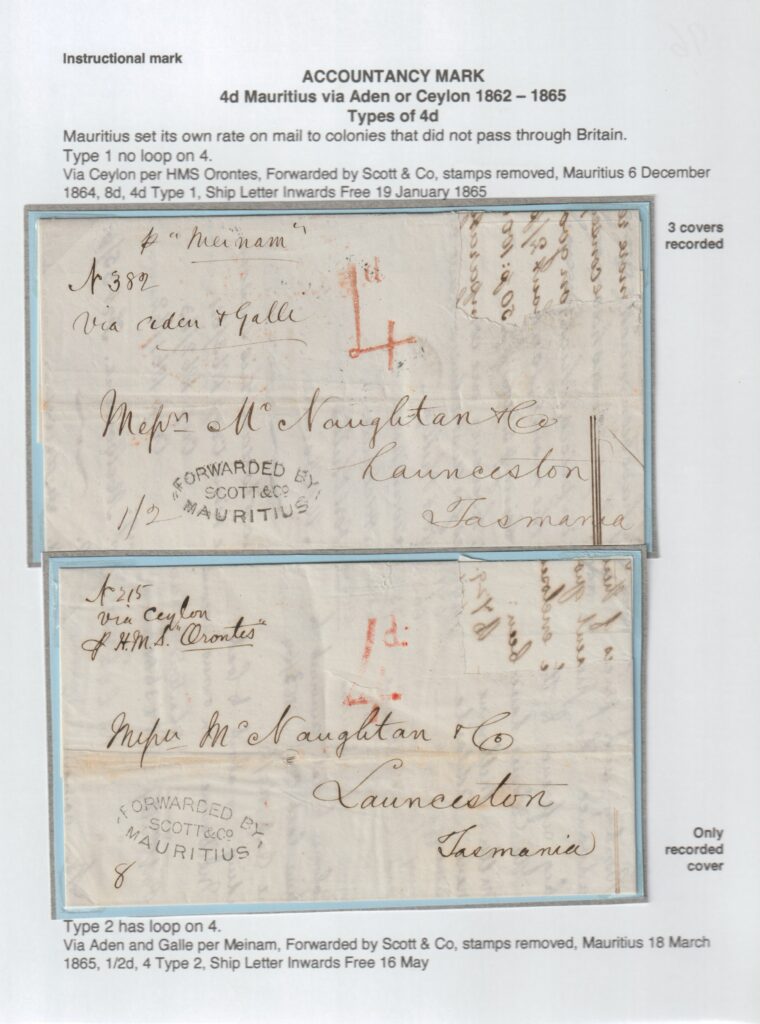 Instructional mark
ACCOUNTANCY MARK
4d Mauritius via Aden or Ceylon 1862 – 1865
Types of 4d
Mauritius set its own rate on mail to colonies that did not pass through Britain.
Type 1 no loop on 4.
Via Ceylon per HMS Orontes, Forwarded by Scott & Co, stamps removed, Mauritius 6 December
1864, 8d, 4d Type 1, Ship Letter Inwards Free 19 January 1865
3 covers
recorded
p "Meinam"
N 382
via aden & Galle
4d
Messrs Mc Naughtan & Co
Launceston
Tasmania
"FORWARDED BY"
SCOTT & Co
MAURITIUS
1/2
N 215
via Ceylon
p H.M.S. "Orontes"
4d
Messrs Mc Naughtan & Co
Launceston
Tasmania
"FORWARDED BY"
SCOTT & Co
MAURITIUS
8
Only
recorded
cover
Type 2 has loop on 4.
Via Aden and Galle per Meinam, Forwarded by Scott & Co, stamps removed, Mauritius 18 March
1865, 1/2d, 4 Type 2, Ship Letter Inwards Free 16 May